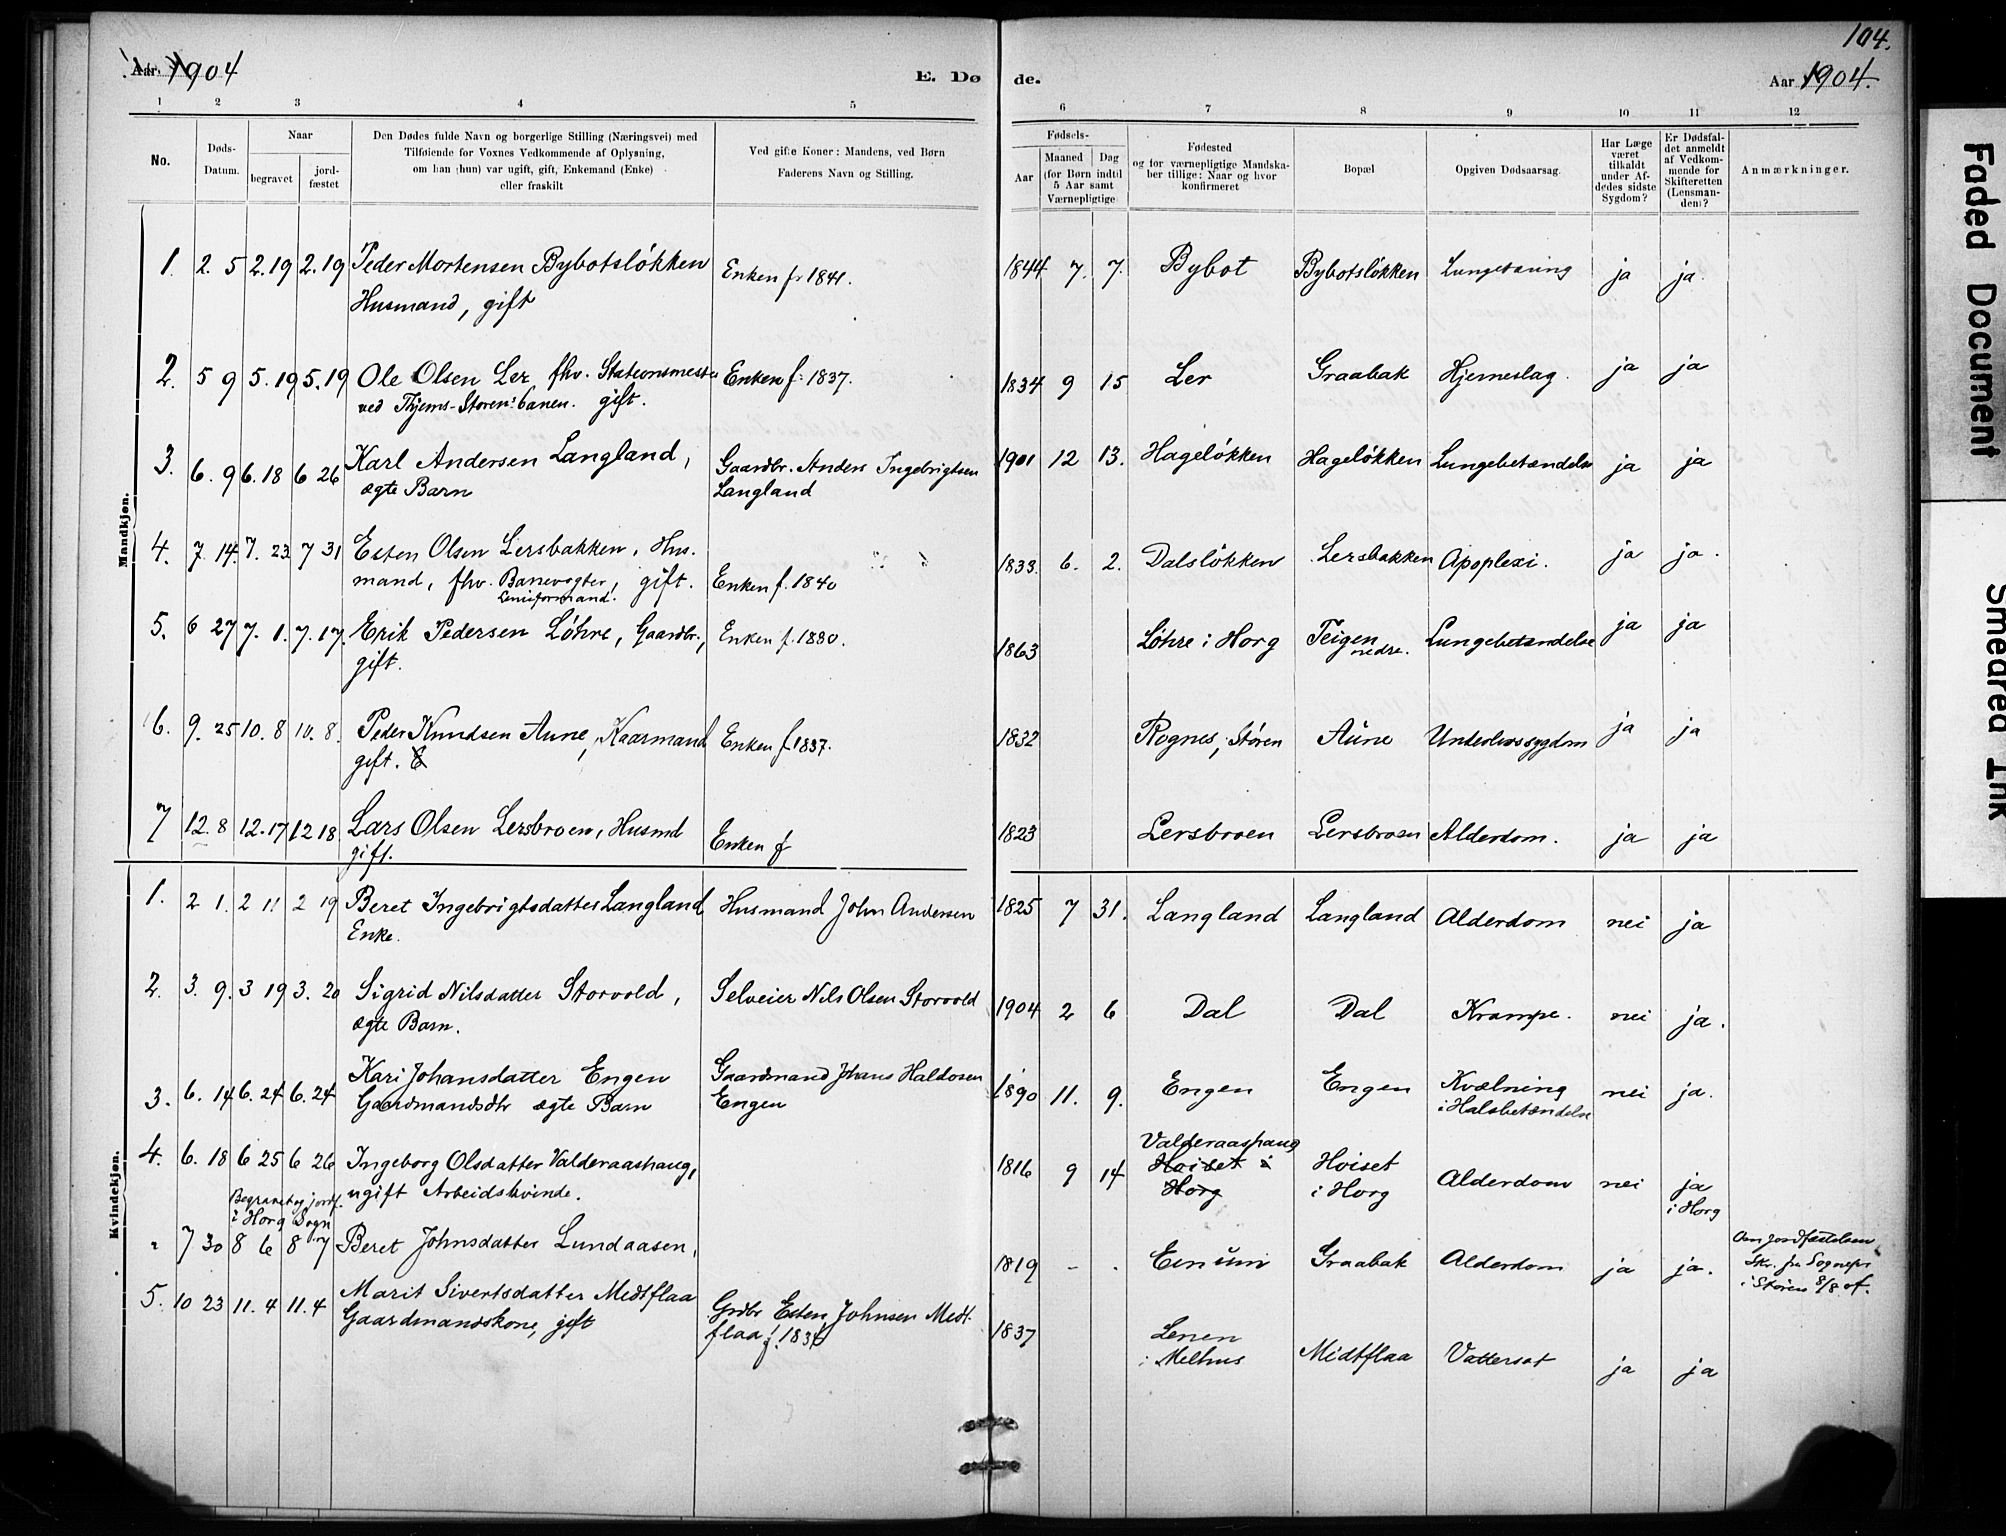 104.
Aar 1904
E. Dø de.
Aar 1904.
1 2 3 4 5 6 7 8 9 10 11 12
No.
Døds-
Datum.
Naar
begravet
jord-
fæstet
Den Dødes fulde Navn og borgerlige Stilling (Næringsvei) med
Tilføiende for Voxnes Vedkommende af Oplysning,
om han (hun) var ugift, gift, Enkemand (Enke)
eller fraskilt
Ved gifte Koner: Mandens, ved Børn
Faderens Navn og Stilling.
Fødsels-
Aar
Maaned Dag
(for Børn indtil
5 Aar samt
Værnepligtige
Fødested
og for værnepligtige Mandska-
ber tillige: Naar og hvor
konfirmeret
Bopæl
Opgiven Dødsaarsag.
Har Læge
været
tilkaldt
under Af-
dødes sidste
Sygdom?
Er Dødsfal-
det anmeldt
af Vedkom-
mende for
Skifteretten
(Lensman-
den)?
Anmærkninger.
Mandkjøn.
1. 2. 5 2.19 2.19 Peder Mortensen Bybotsløkken Enken f. 1841. 1844 7. 7. Bybot Bybotsløkken Lungetæring ja ja.
Husmand, gift
2. 5 9 5.19 5.19 Ole Olsen Ler fhv. Stationsmester Enken f. 1837. 1834 9 15 Ler Graabak Hjerneslag. ja ja
ved Thjems-Størenbanen. gift.
3. 6. 9 6.18 6 26 Karl Andersen Langland, Gaardbr. Anders Ingebrigtsen 1901 12 13. Hageløkken Hageløkken Lungebetændelse ja ja
ægte Barn Langland
4. 7. 14. 7. 23 7 31 Esten Olsen Lersbakken, Hus- 1833. 6. 2. Dalsløkken Lersbakken Apoplexi. ja ja.
mand, fhv. Banevogter, gift. Enken f. 1840
5. 6 27 7. 1. 7. 17. Erik Pedersen Løhre, Gaardbr., Enken f. 1880. 1863 Løhre i Horg Teigen Lungebetændelse ja ja
gift. nedre.
6. 9. 25 10. 8 10. 8. Peder Knudsen Aune, Kaarmand Enken f 1837. 1832 Rognes, Støren Aune Underlivssygdom ja ja
gift.
7 12. 8 12.17 12 18 Lars Olsen Lersbroen, Husmd Enken f 1823 Lersbroen Lersbroen Alderdom. ja ja
gift.
Kvindekjøn.
1. 2 1. 2 11 2 19 Beret Ingebrigtsdatter Langland Husmand John Andersen 1825 7 31. Langland Langland Alderdom nei ja
Enke.
2. 3. 9. 3 19 3. 20 Sigrid Nilsdatter Storvold, Selveier Nils Olsen Storvold 1904 2 6 Dal Dal Krampe. nei ja.
ægte Barn.
3. 6. 14 6. 24 6. 24 Kari Johansdatter Engen Gaardmand Johans Haldosen 1890 11. 9. Engen Engen Kvælning nei ja.
Gaardmandsdtr ægte Barn Engen i Halsbetændelse
4. 6. 18 6 25 6 26 Ingeborg Olsdatter Valderaashaug, 1816 9 14 Valderaashaug Hoiset Alderdom nei ja
ugift Arbeidskvinde. Hoiset i Horg i Horg i Horg
Begravet og jordf.
i Horg Sogn
" 7 30 8 6 8 7 Beret Johnsdatter Lundaasen, 1819 - . Graabak Alderdom ja ja. Om Jordfæstelsen
Skr. fra Sognepr
i Støren
5. 10 23 11. 4 11. 4 Marit Sivertsdatter Medtflaa Grdbr Esten Johnsen Medt- 1837 Lenen Midtflaa Vattersot ja ja
Gaardmandskone, gift flaa i Melhus
Faded Document
Smeared Ink